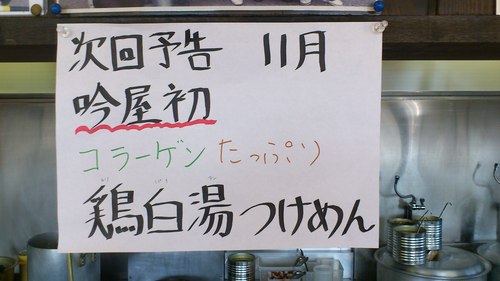 次回予告 11月
吟屋初
コラーゲン たっぷり
鶏白湯つけめん